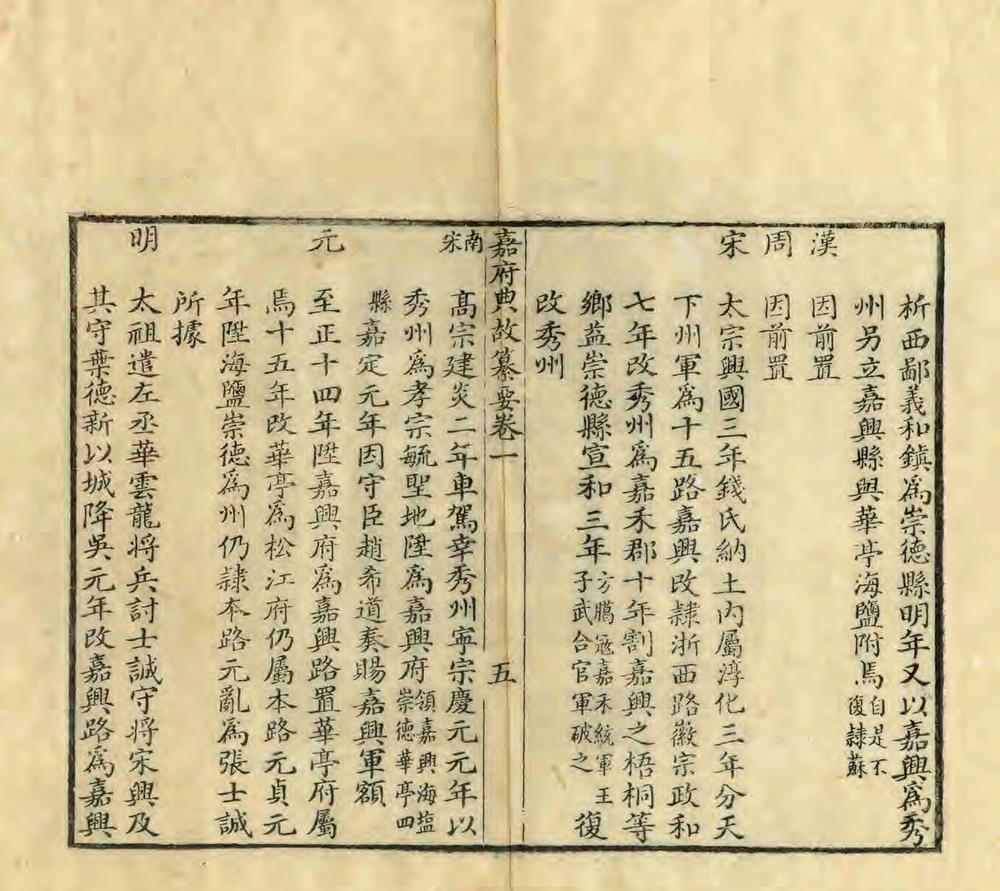 析西鄙義和鎮爲崇德縣明年又以嘉興爲秀
州另立嘉興縣與華亭海鹽附焉自是不復隸蘇
漢
因前置
周
因前置
宋
太宗興國三年錢氏納土内屬淳化三年分天
下州軍爲十五路嘉興改隸浙西路徽宗政和
七年改秀州爲嘉禾郡十年割嘉興之梧桐等
鄉益崇德縣宣和三年方臈宼嘉禾統軍王子武合官軍破之復
改秀州
嘉府典故纂要卷一
五
南宋
髙宗建炎二年車駕幸秀州寧宗慶元元年以
秀州爲孝宗毓聖地陞爲嘉興府領嘉興海塩崇德華亭四
縣嘉定元年因守臣趙希道奏賜嘉興軍額
元
至正十四年陞嘉興府爲嘉興路置華亭府屬
焉十五年改華亭爲松江府仍屬本路元貞元
年陞海鹽崇德爲州仍隸本路元亂爲張士誠
所據
明
太祖遣左丞華雲龍將兵討士誠守將宋興及
其守葉德新以城降吳元年改嘉興路爲嘉興